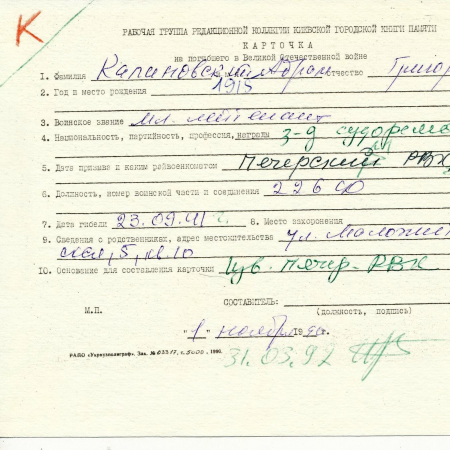 К
РАБОЧАЯ ГРУППА РЕДАКЦИОННОЙ КОЛЛЕГИИ КИЕВСКОЙ ГОРОДСКОЙ КНИГИ ПАМЯТИ
КАРТОЧКА
на погибшего в Великой Отечественной войне
1. Фамилия
2. Год и место рождения 1915
3. Воинское звание мл. лейтенант
4. Национальность, партийность, профессия, награды з-д
5. Дата призыва и каким райвоенкоматом Печерский РВК
6. Должность, номер воинской части и соединения 226 сд
7. Дата гибели 23.09.41 г. 8. Место захоронения
9. Сведения о родственниках, адрес местожительства ул.
5,
10. Основание для составления карточки Изв. Печер. РВК
СОСТАВИТЕЛЬ:
М.П. (должность, подпись)
"1" ноября 1990
РАПО «Укрвузполиграф», Зак. 1990.
31.03.92